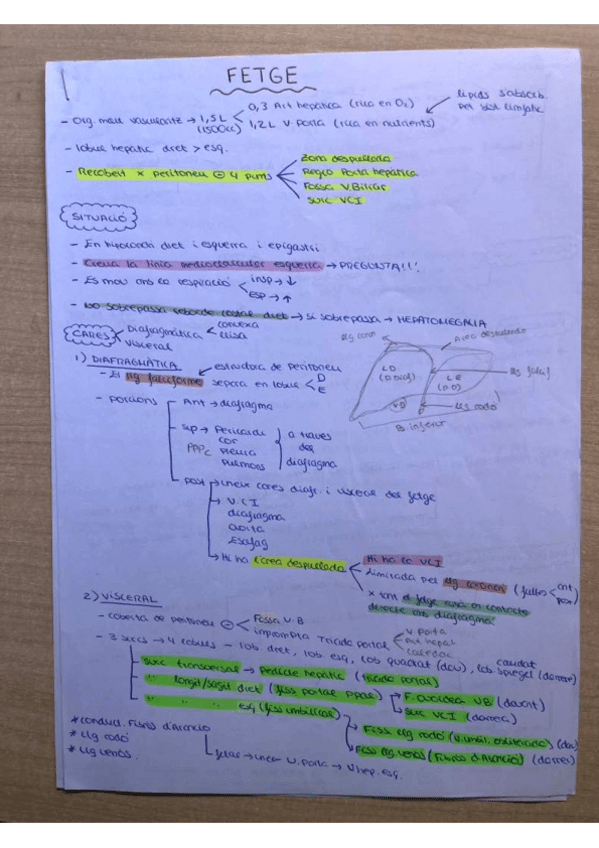 FETGE
- Org. molt vascularitz → 1,5 L (1500cc)
0,3 Art hepàtica (rica en O2)
1,2 L V. porta (rica en nutrients)
lípids s'absorb. per sist limfàtic
- lòbul hepàtic dret > esq.
- Recobert x peritoneu ⊖ 4 punts
Zona despullada
Regió Porta hepàtica
Fossa V. Biliar
Surc VCI
SITUACIÓ
- En hipocondri dret i esquerra i epigastri
- Creua la línia medioclavicular esquerra → PREGUNTA!!!
- Es mou amb la respiració
insp → ↓
esp → ↑
- No sobrepassa reborde costal dret → si sobrepassa → HEPATOMEGALIA
CARES
Diafragmàtica
convexa
llisa
Visceral
1) DIAFRAGMÀTICA
estructura de peritoneu
- El llig falciforme separa en lòbuls
D
E
lig coron
Àrea despullada
LD
LE
lig falcif
lig rodó
B. inferior
- Porcions
Ant → diafragma
Sup → Pericardi
cor
PPPC
Pleura
Pulmons
a través del diafragma
post → uneix cares diafr. i visceral del fetge
→ V.CI
diafragma
aorta
Esòfag
→ Hi ha l'àrea despullada
Hi ha la VCI
Limitada per llig coronari (fulles
ant
post
x tant el fetge està en contacte
directe amb diafragma
2) VISCERAL
- coberta de peritoneu ⊖
Fossa V.B
impromta Triada portal
V. porta
Art hepat
colèdoc
- 3 surcs → 4 lòbuls - lòb. dret, lòb. esq, lòb quadrat (dav), lòb. caudat spiegel (darrere)
- Surc transversal → Pedicle hepàtic (triada portal)
- " longit/sagit dret (fiss portal ppal)
F. cística VB (davant)
Surc VCI (darrera)
- " " " esq (fiss umbilical)
Fiss llig rodó (v. umbil. obliterada) (dav)
Fiss llig venós (fissura d'Arancio) (darrera)
* conduct. fissura d'Arancio
* llig rodó
* llig venós.
fetal → uneix V. porta → V hep. esq.